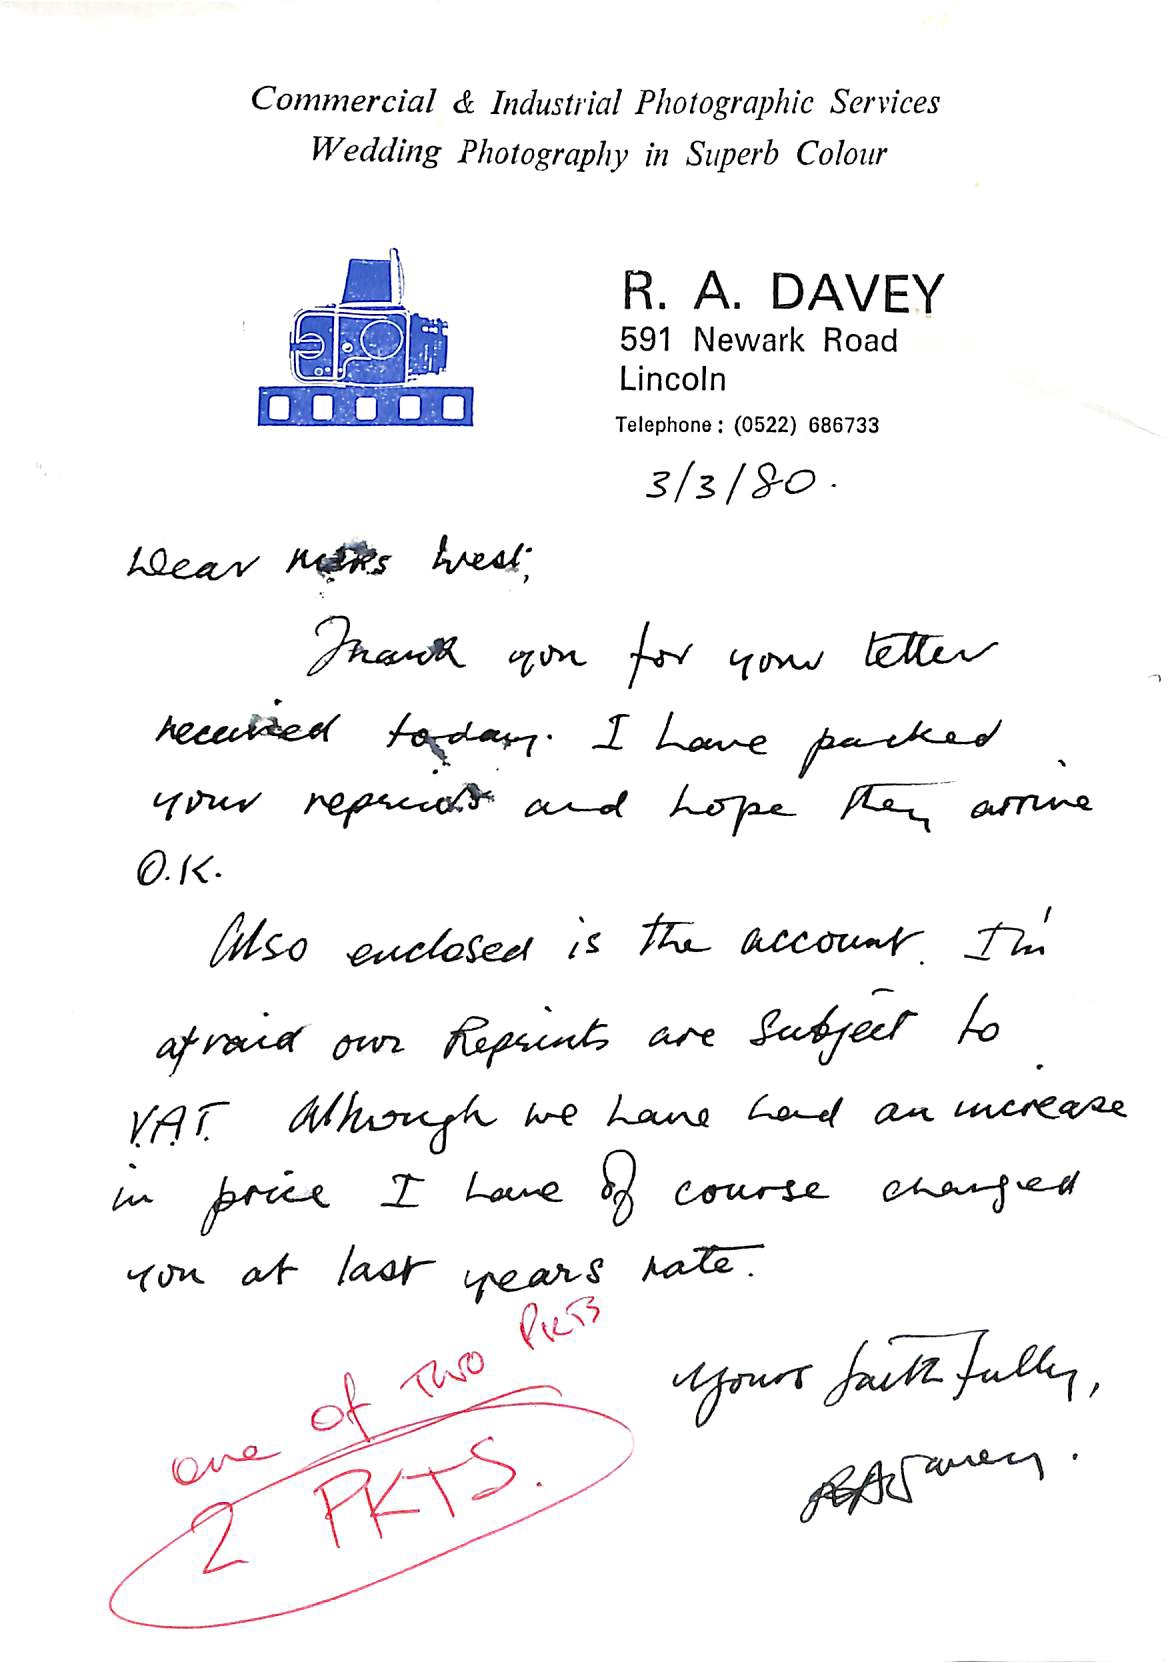 Commercial & Industrial Photographic Services
Wedding Photography in Superb Colour
R. A. DAVEY
591 Newark Road
Lincoln
Telephone: (0522) 686733
3/3/80.
Dear West,
Thank you for your letter
received today. I have packed
your reprints and hope they arrive
O.K.
Also enclosed is the account. I'm
afraid our Reprints are Subject to
V.A.T. Although we have had an increase
in price I have of course charged
you at last years rate.
Yours faithfully,
RADavey.
one of TWO PKTS
2 PKTS.